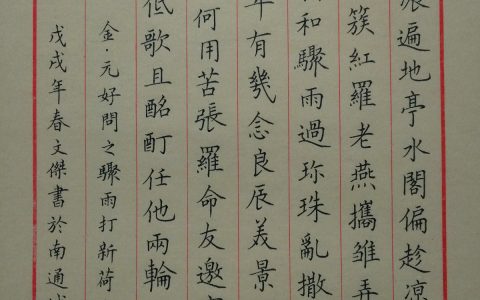 遍地亭水閣偏趁涼
簇紅羅老燕攜雛弄
和驟雨過珎珠亂撒
年有幾念良辰美景
何用苦張羅命友邀
低歌且酩酊任他兩輪
金·元好問之驟雨打新荷
戊戌年春文傑書於南通